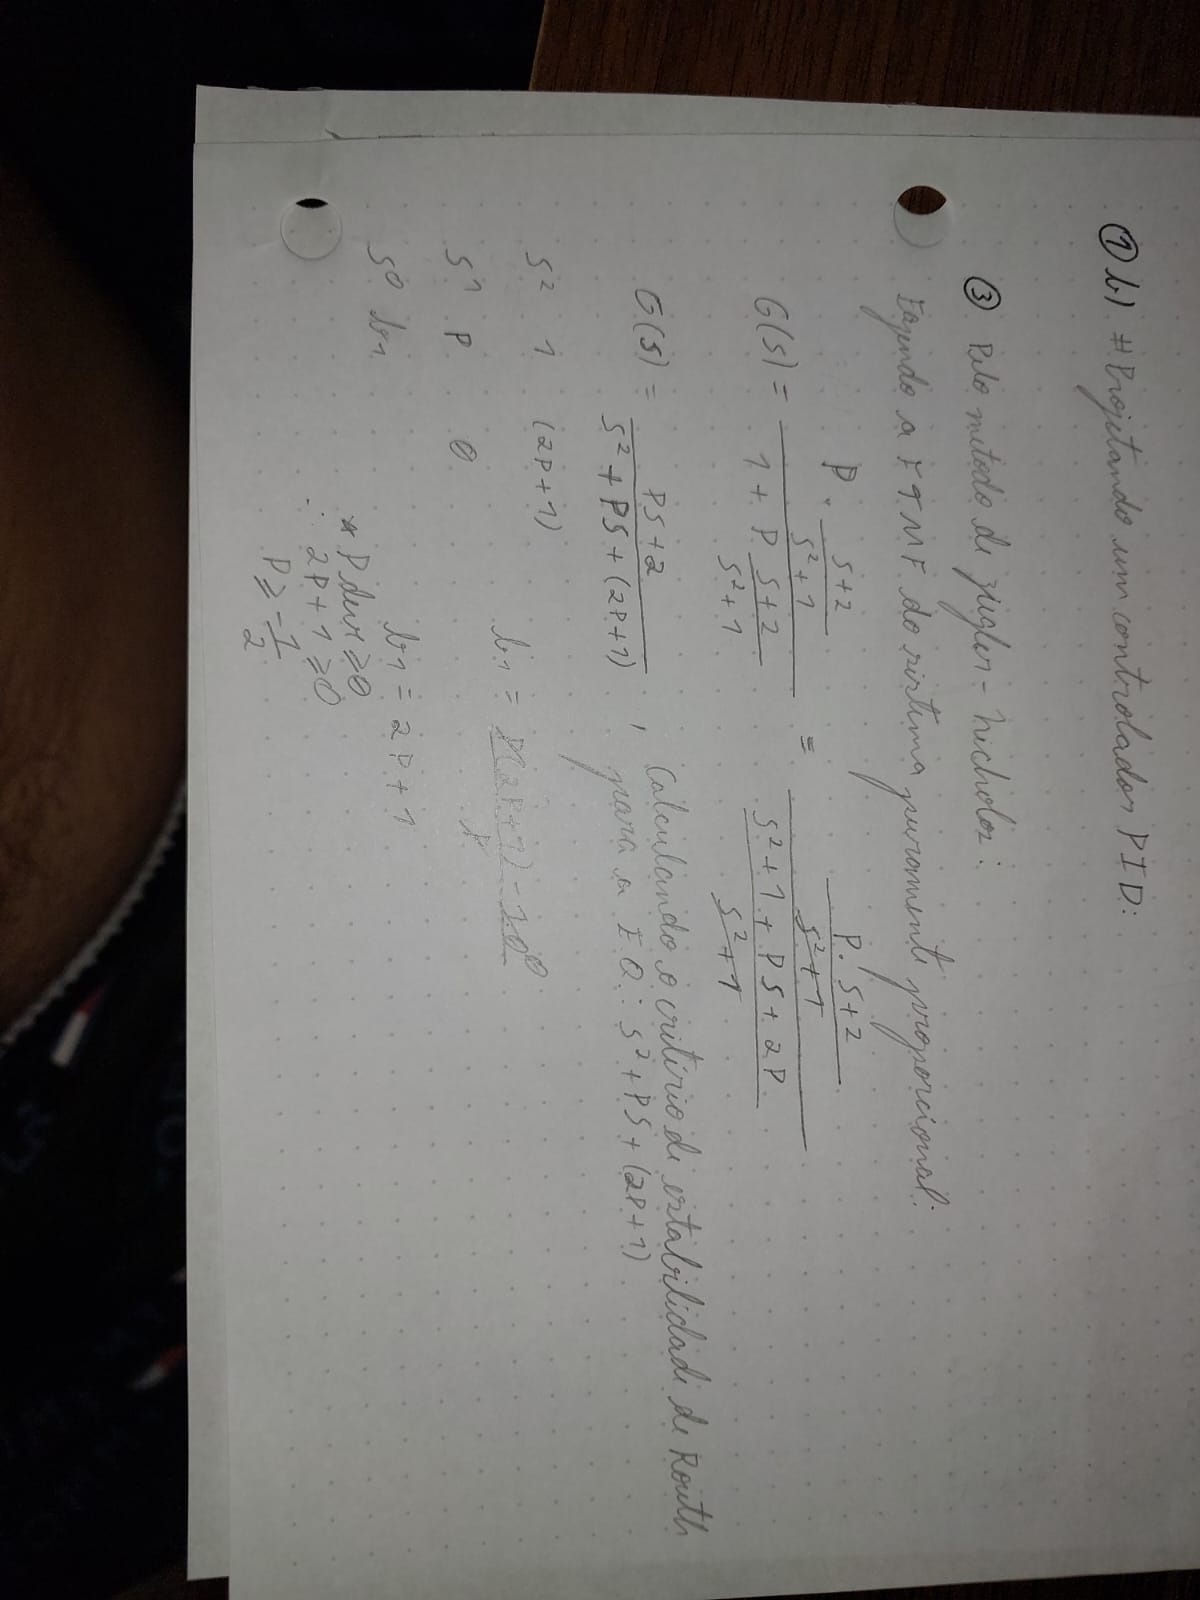 ① b) # Projetando um controlador PID:
③ Pelo método de ziegler-nicholos:
Fazendo a FTMF do sistema puramente proporcional:
G(s) = (P · (s+2)/(s²+1)) / (1 + P (s+2)/(s²+1)) = (P · s+2/(s²+1)) / ((s²+1+Ps+2P)/(s²+1))
G(s) = (Ps+2)/(s²+Ps+(2P+1)) , Calculando o critério de estabilidade de Routh
para a EQ: s²+Ps+(2P+1)
s² 1 (2P+1)
s¹ P 0
b1 = (P(2P+1) - 1·0)/P
s⁰ b1
b1 = 2P+1
* P deve ≥0
∴ 2P+1 ≥0
P ≥ -1/2